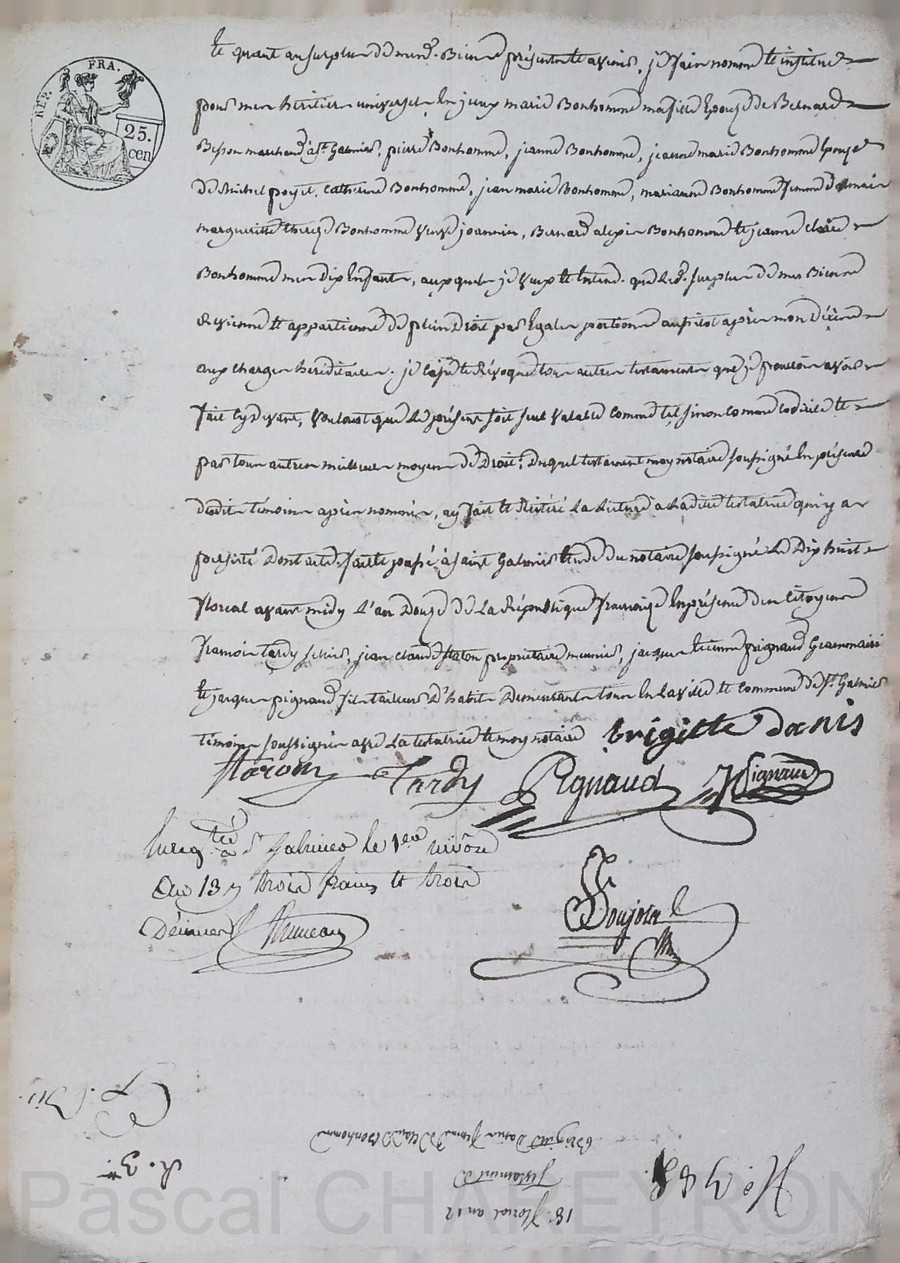 REP. FRA.
25.
cen
Et quant au surplus de mes Biens présents et avenir, je fais nomme et institue
pour mes héritiers universels en jeux marie Bonhomme ma fille Epouse de Bernard
Besson marchand a St Galmier, pierre Bonhomme, jeanne Bonhomme, jeanne marie Bonhomme Epouse
de Michel poyet, Catherine Bonhomme, jean marie Bonhomme, marianne Bonhomme femme
margueritte therese Bonhomme veuve joannin, Bernard alexis Bonhomme et jeanne claire
Bonhomme mes dix Enfants, auxquels je veux et Entend que le surplus de mes Biens
Revienne et appartienne de plein Droit par Egales portions aussitot après mon Décès
aux charges héréditaires. je casse et Révoque tous autres testaments que je pourrois avoir
fait cy devant, voulant que le présent soit seul valable comme tel sinon comme codicile et
par tous autres meilleurs moyens de Droit. Duquel testament moy notaire soussigné En présence
desdits témoins après nommés, ay fait et Réitéré La Lecture a Ladite testatrice qui y a
persisté Dont acte. fait et passé à Saint Galmier Etude du notaire soussigné Le Dix huit
floreal avant midy L'an Douze de La République française En présence des Citoyens
François tardy, jean claude Maron propriétaire meunier, jacques Etienne pignaud
et jacques pignaud fils tailleur D'habits Demeurants tous En La ville et commune de St Galmier
témoins soussignés avec La testatrice et moy notaire brigitte danis
Maron Tardy Pignaud Pignaud
Enregtré à St Galmier le 1er nivôse
an 13 trois francs et trois
Décimes
Boujon
No 388
18 floreal an 12
Testament de
Brigitte Danis femme de Bonhomme
R. 3
Pascal CHAREYRON